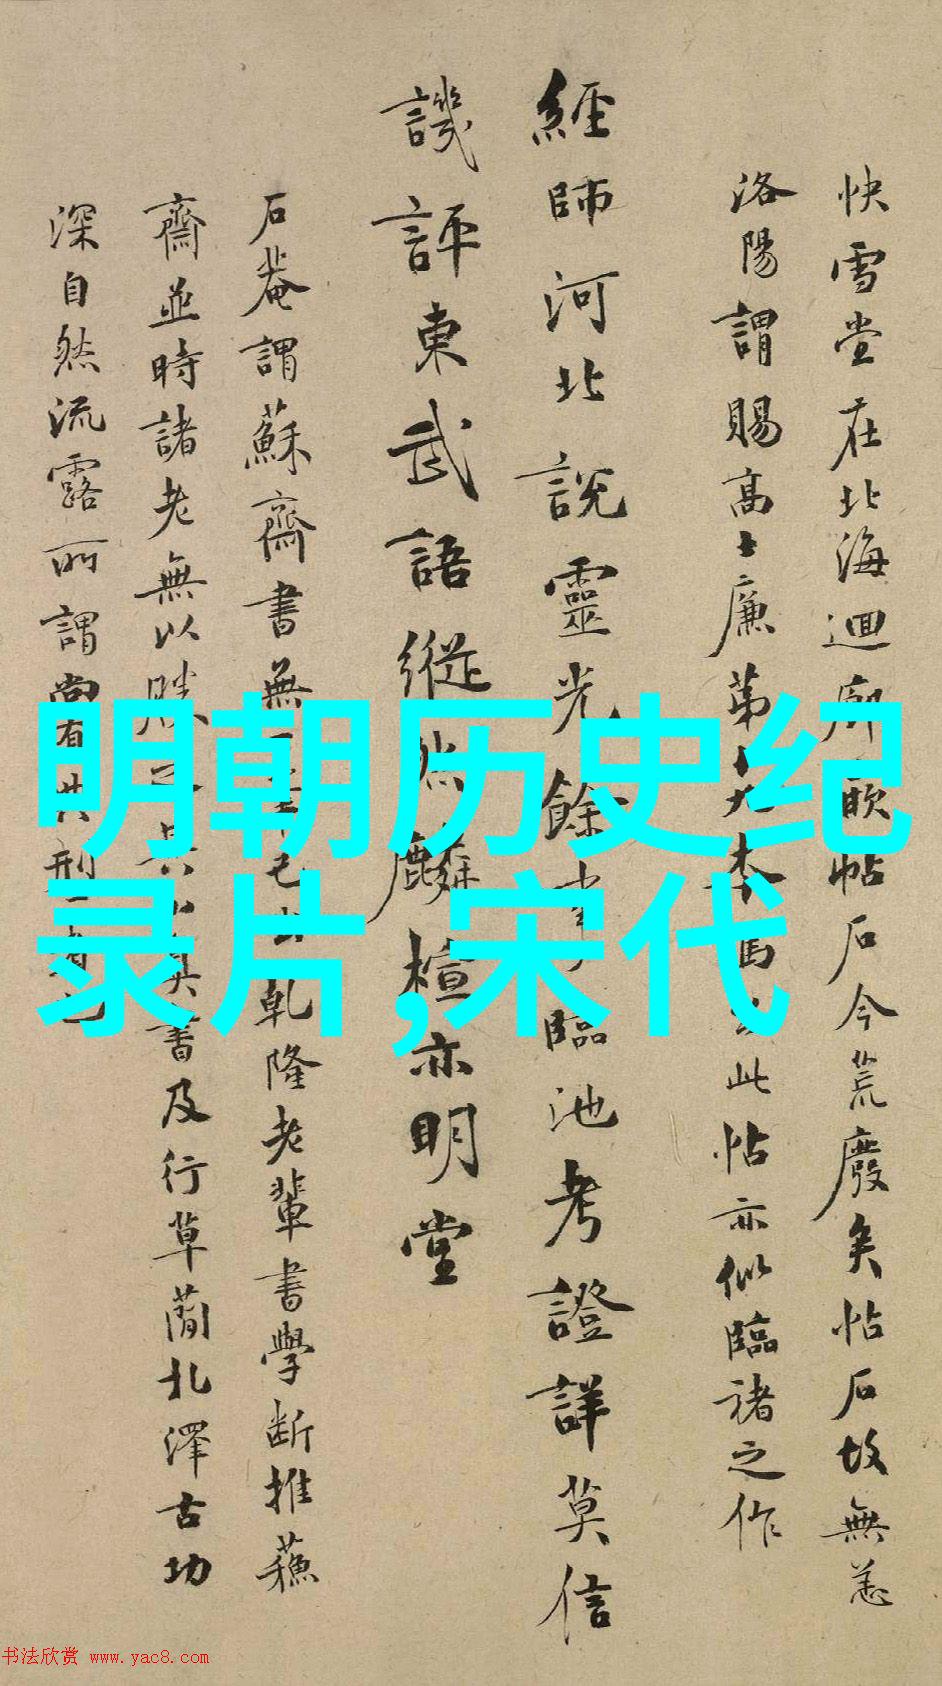 快雪堂在北海迴廊嵌帖石今荒廢矣帖石故無恙
洛陽謂賜高士廉第九本
此帖亦似臨褚之作
經師河北說靈光餘事臨池考證詳莫信
譏評東武語縱然麟楦亦明堂
石菴謂蘇齋書無一筆
乾隆老輩書學斷推蘓
齋並時諸老無以勝之
書及行草蕑北澤古功
深自然流露所謂尚有典刑
明朝历史纪
录片,宋代
书法欣赏 www.yac8.com